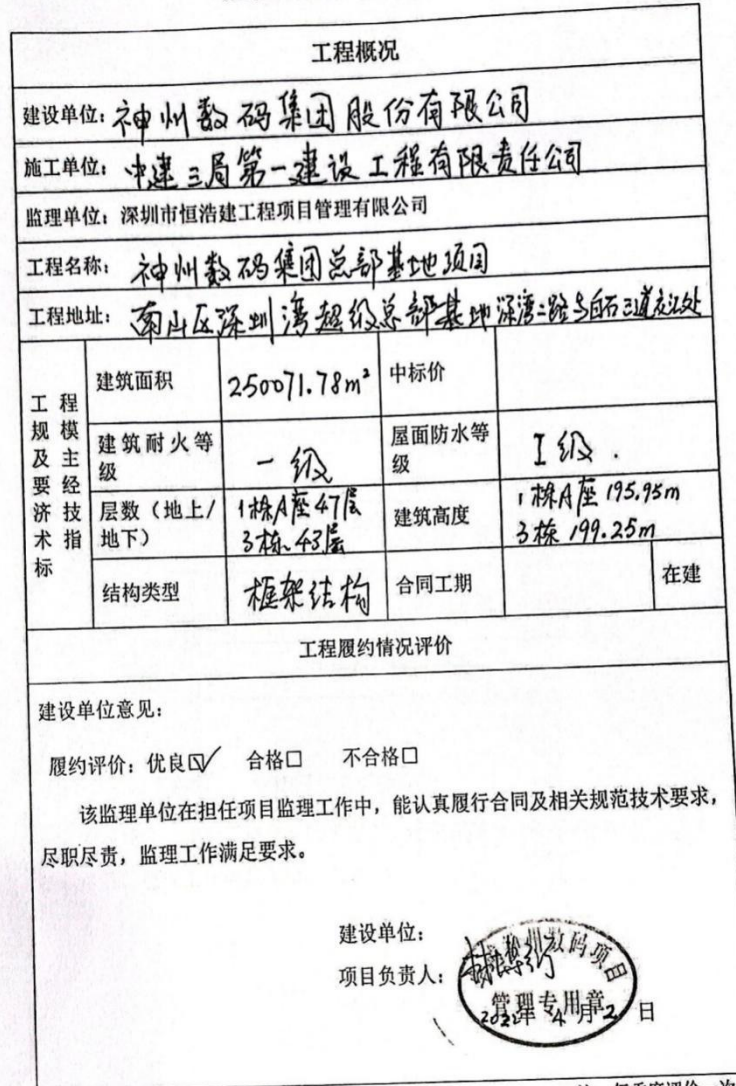 工程概况
建设单位：神州数码集团股份有限公司
施工单位：中建三局第一建设工程有限责任公司
监理单位：深圳市恒浩建工程项目管理有限公司
工程名称：神州数码集团总部基地项目
工程地址：南山区深圳湾超级总部基地深湾二路与白石三道交汇处
工程规模及主要经济技术指标
建筑面积 250071.78m² 中标价
建筑耐火等级 一级 屋面防水等级 I级.
层数（地上/地下） 1栋A座47层 3栋43层 建筑高度 1栋A座195.95m 3栋199.25m
结构类型 框架结构 合同工期 在建
工程履约情况评价
建设单位意见：
履约评价：优良☑ 合格□ 不合格□
该监理单位在担任项目监理工作中，能认真履行合同及相关规范技术要求，
尽职尽责，监理工作满足要求。
建设单位：
项目负责人：
神州数码项目
管理专用章
年 4 月 2 日